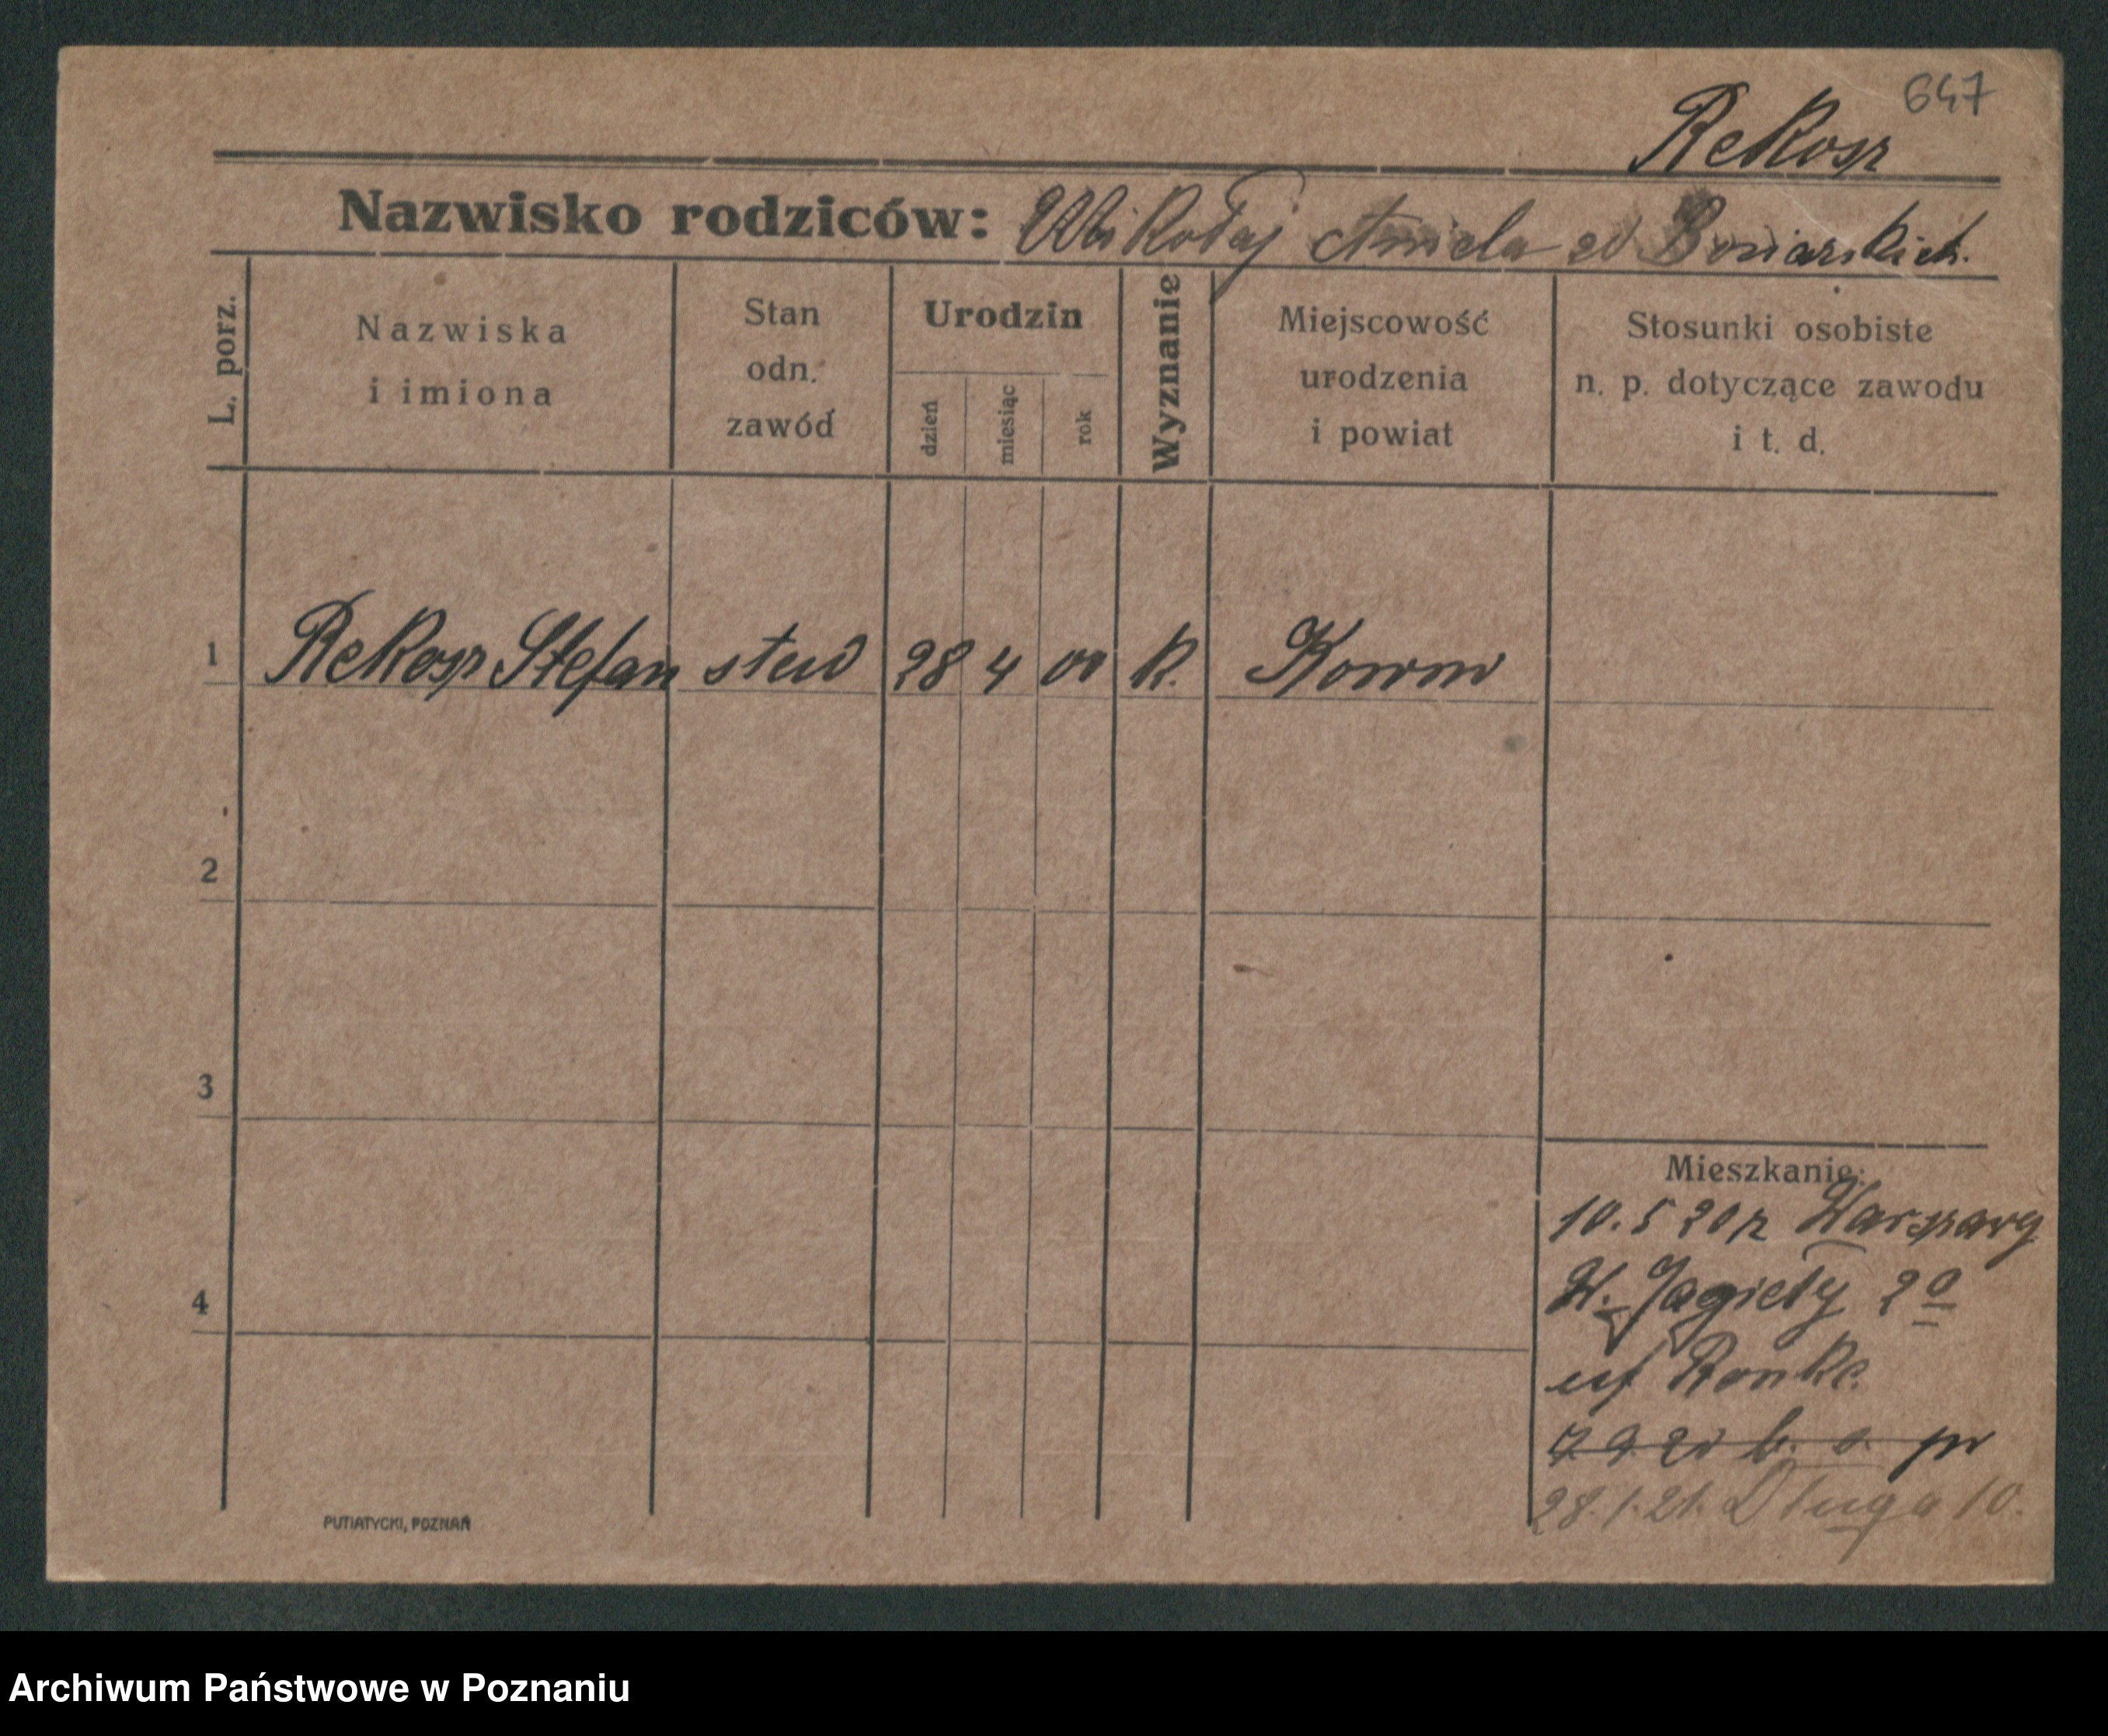 647
Rekosz
Nazwisko rodziców: Mikołaj Aniela z Boniarskich.
L. porz.
Nazwiska
i imiona
Stan
odn.
zawód
Urodzin
dzień
miesiąc
rok
Wyznanie
Miejscowość
urodzenia
i powiat
Stosunki osobiste
n. p. dotyczące zawodu
i t. d.
1 Rekosz Stefan stud 28 4 00 k. Kowno
2
3
Mieszkanie:
10.5 20 r Warszawy
W. Jagiełły
4
28.1.21. Długa 10.
PUTIATYCKI, POZNAŃ
Archiwum Państwowe w Poznaniu